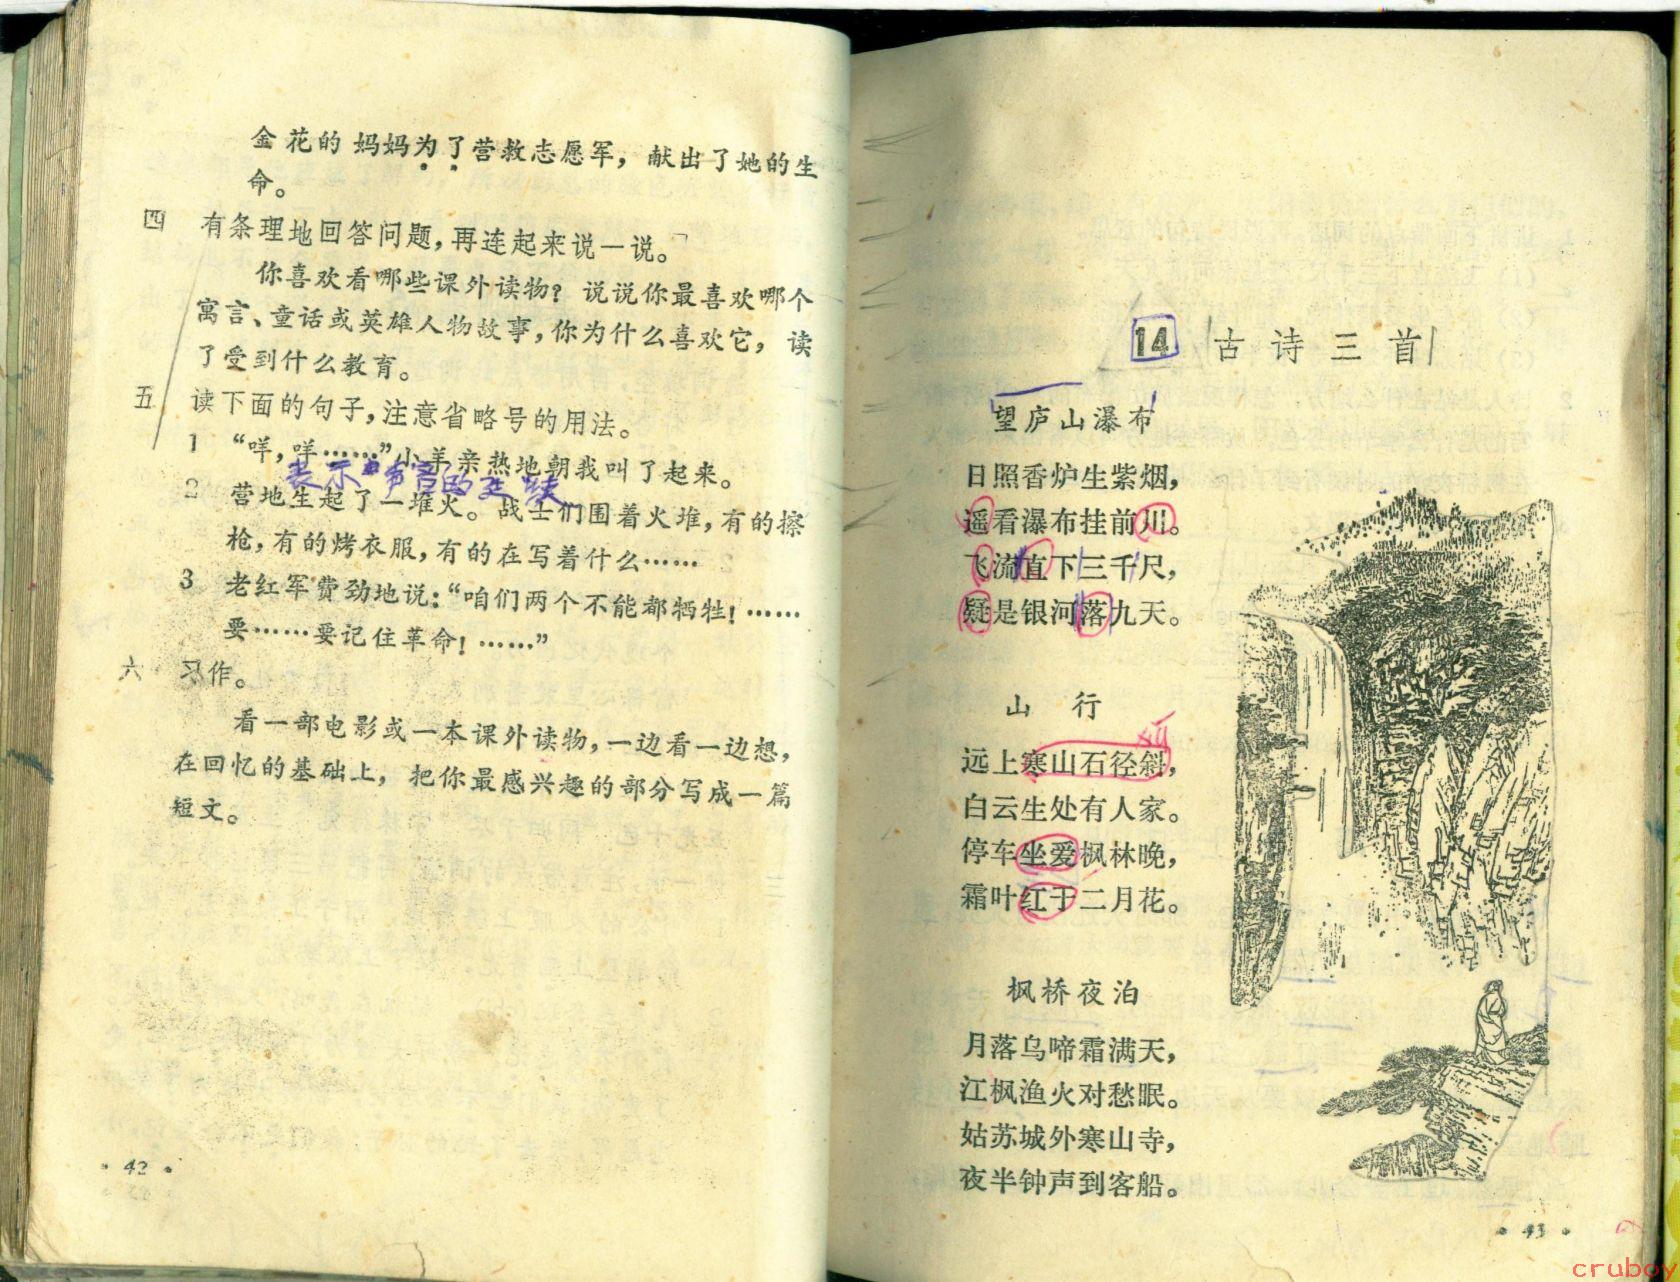 金花的妈妈为了营救志愿军，献出了她的生
命。
四 有条理地回答问题，再连起来说一说。
你喜欢看哪些课外读物？说说你最喜欢哪个
寓言、童话或英雄人物故事，你为什么喜欢它，读
了受到什么教育。
五 读下面的句子，注意省略号的用法。
1 “咩，咩……”小羊亲热地朝我叫了起来。
表示声音的延续
2 营地生起了一堆火。战士们围着火堆，有的擦
枪，有的烤衣服，有的在写着什么……
3 老红军费劲地说：“咱们两个不能都牺牲！……
要……要记住革命！……”
六 习作。
看一部电影或一本课外读物，一边看一边想，
在回忆的基础上，把你最感兴趣的部分写成一篇
短文。
• 42 •
14 古诗三首
望庐山瀑布
日照香炉生紫烟，
遥看瀑布挂前川。
飞流直下三千尺，
疑是银河落九天。
山 行
远上寒山石径斜，
白云生处有人家。
停车坐爱枫林晚，
霜叶红于二月花。
枫桥夜泊
月落乌啼霜满天，
江枫渔火对愁眠。
姑苏城外寒山寺，
夜半钟声到客船。
• 43 •
cruboy